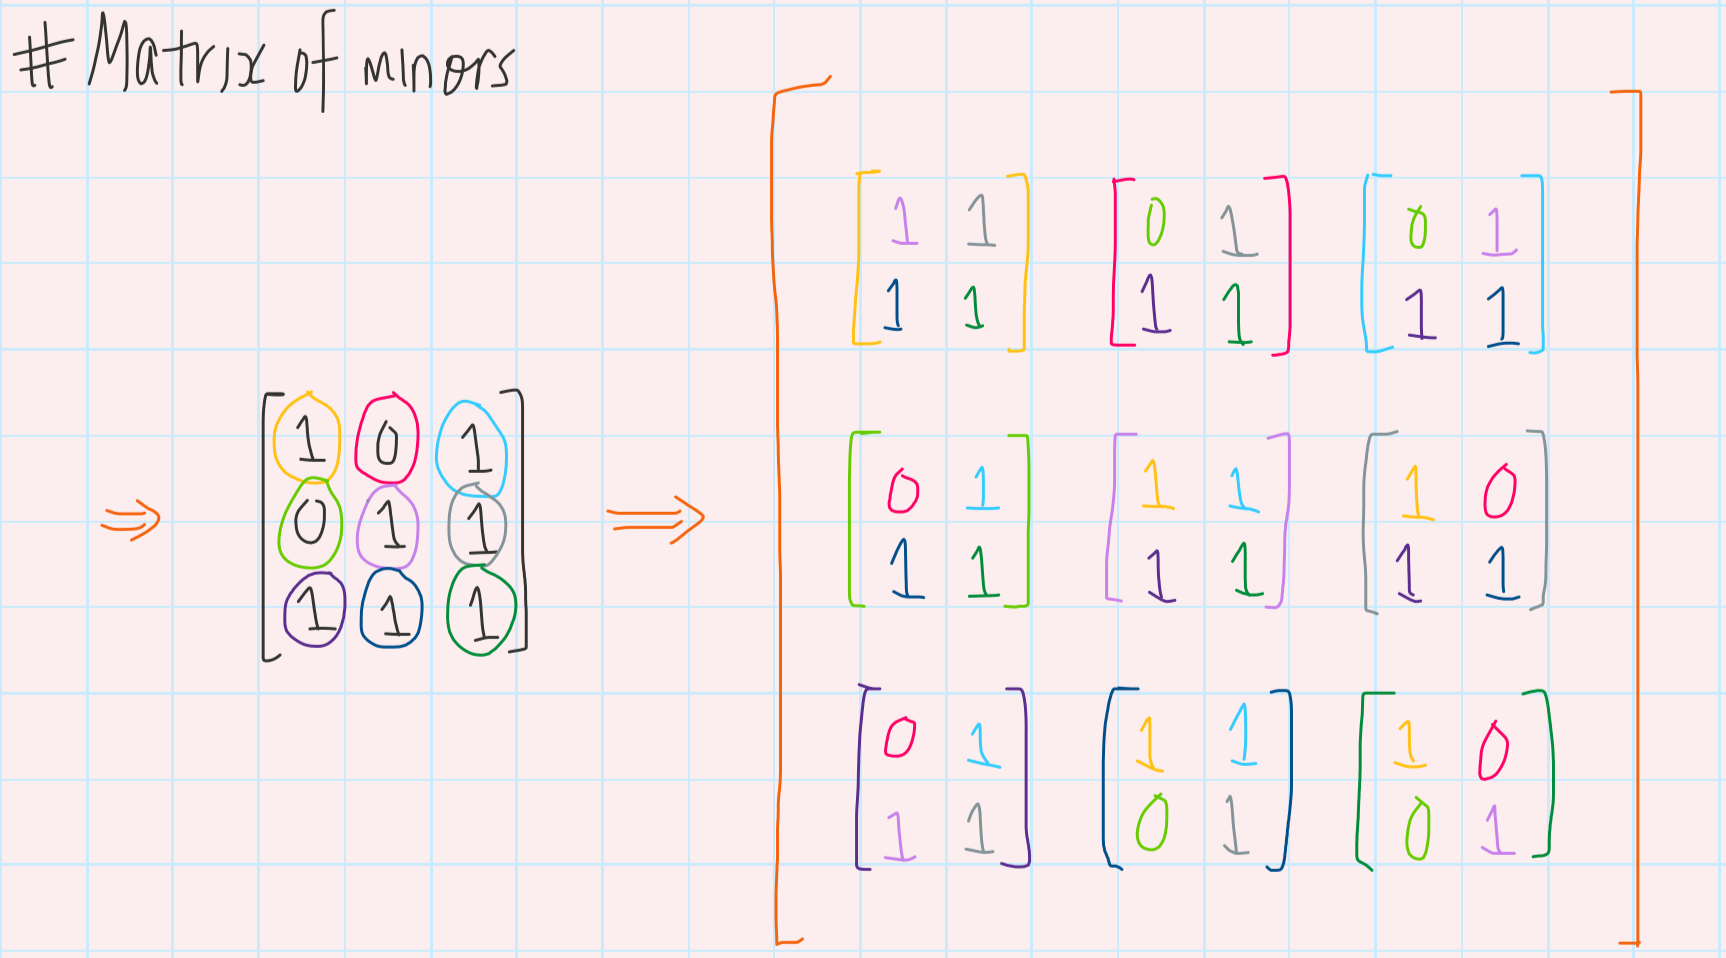 # Matrix of minors
1 1 0 1 0 1
1 1 1 1 1 1
1 0 1
0 1 1
1 1 1
0 1 1 1 1 0
1 1 1 1 1 1
0 1 1 1 1 0
1 1 0 1 0 1